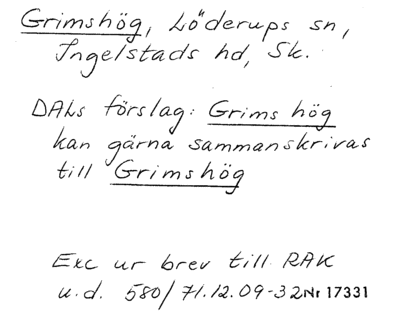 Grimshög, Löderups sn,
Ingelstads hd, Sk.
DALs förslag: Grims hög
kan gärna sammanskrivas
till Grimshög
Exc ur brev till RAK
u.d. 580/71.12.09-32 Nr 17331